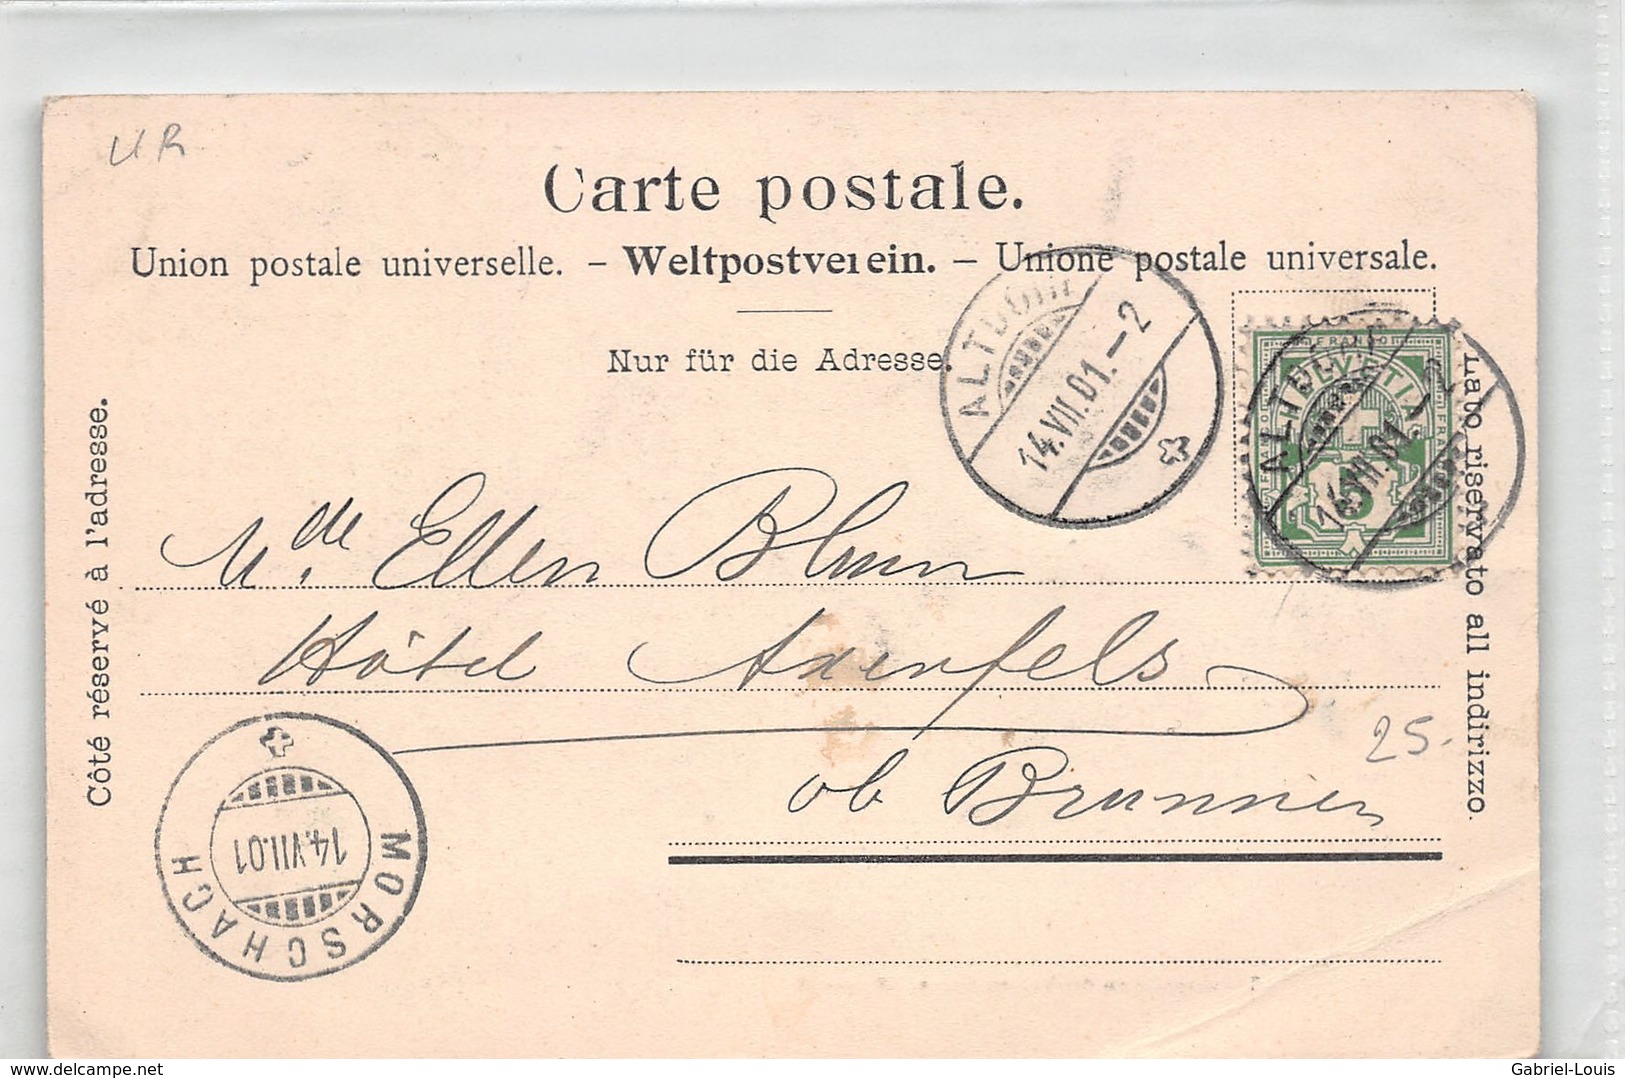 UR
Carte postale.
Union postale universelle. – Weltpostverein. – Unione postale universale.
Nur für die Adresse.
Côté réservé à l'adresse.
Lato riservato all indirizzo.
ALTDORF
14.VII.01.–2
ALTDORF
14.VII.01.–2
FRANCO
HELVETIA
FRANCO
FRANCO
5
Mde. Ellen Blum
Hôtel Axenfels
ob Brunnen
25.
MORSCHACH
14.VII.01
delcampe.net
Gabriel-Louis